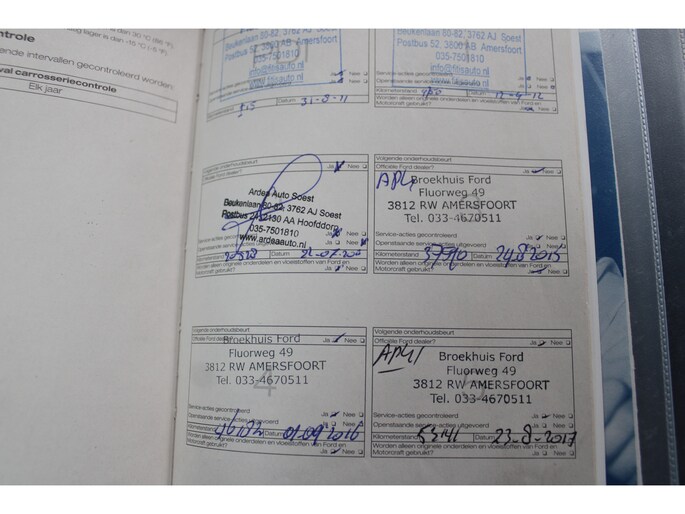 ntrole
nde intervallen gecontroleerd worden:
val carrosseriecontrole
Elk jaar
Beukenlaan 80-82, 3762 AJ Soest
Postbus 52, 3800 AB Amersfoort
035-7501810
info@fitisauto.nl
www.fitisauto.nl
Datum 31-8-11
3762 AJ Soest
Postbus 52, 3800 AB Amersfoort
035-7501810
Kilometerstand
Datum
Worden alleen originele onderdelen en vloeistoffen van Ford en
Motorcraft gebruikt? Ja Nee
Volgende onderhoudsbeurt
Ja Nee
Ardea Auto Soest
Beukenlaan 80-82, 3762 AJ Soest
2130 AA Hoofddorp
035-7501810
www.ardeaauto.nl
Service-acties gecontroleerd Ja Nee
Openstaande service-acties uitgevoerd Ja Nee
Kilometerstand Datum
Worden alleen originele onderdelen en vloeistoffen van Ford en
Motorcraft gebruikt? Ja Nee
Volgende onderhoudsbeurt
Officiële Ford dealer? Ja Nee
APK
Broekhuis Ford
Fluorweg 49
3812 RW AMERSFOORT
Tel. 033-4670511
Service-acties gecontroleerd Ja Nee
Openstaande service-acties uitgevoerd Ja Nee
Kilometerstand Datum 24-8-2015
Worden alleen originele onderdelen en vloeistoffen van Ford en
Motorcraft gebruikt? Ja Nee
Volgende onderhoudsbeurt
Officiële Ford dealer? Ja Nee
Broekhuis Ford
Fluorweg 49
3812 RW AMERSFOORT
Tel. 033-4670511
4
Service-acties gecontroleerd Ja Nee
Openstaande service-acties uitgevoerd Ja Nee
Datum 01-09-2016
Worden alleen originele onderdelen en vloeistoffen van Ford en
Motorcraft gebruikt? Ja Nee
Volgende onderhoudsbeurt
Officiële Ford dealer? Ja Nee
APK
Broekhuis Ford
Fluorweg 49
3812 RW AMERSFOORT
Tel. 033-4670511
Service-acties gecontroleerd Ja Nee
Openstaande service-acties uitgevoerd Ja Nee
Kilometerstand 53141 Datum 23-8-2017
Worden alleen originele onderdelen en vloeistoffen van Ford en
Motorcraft gebruikt? Ja Nee